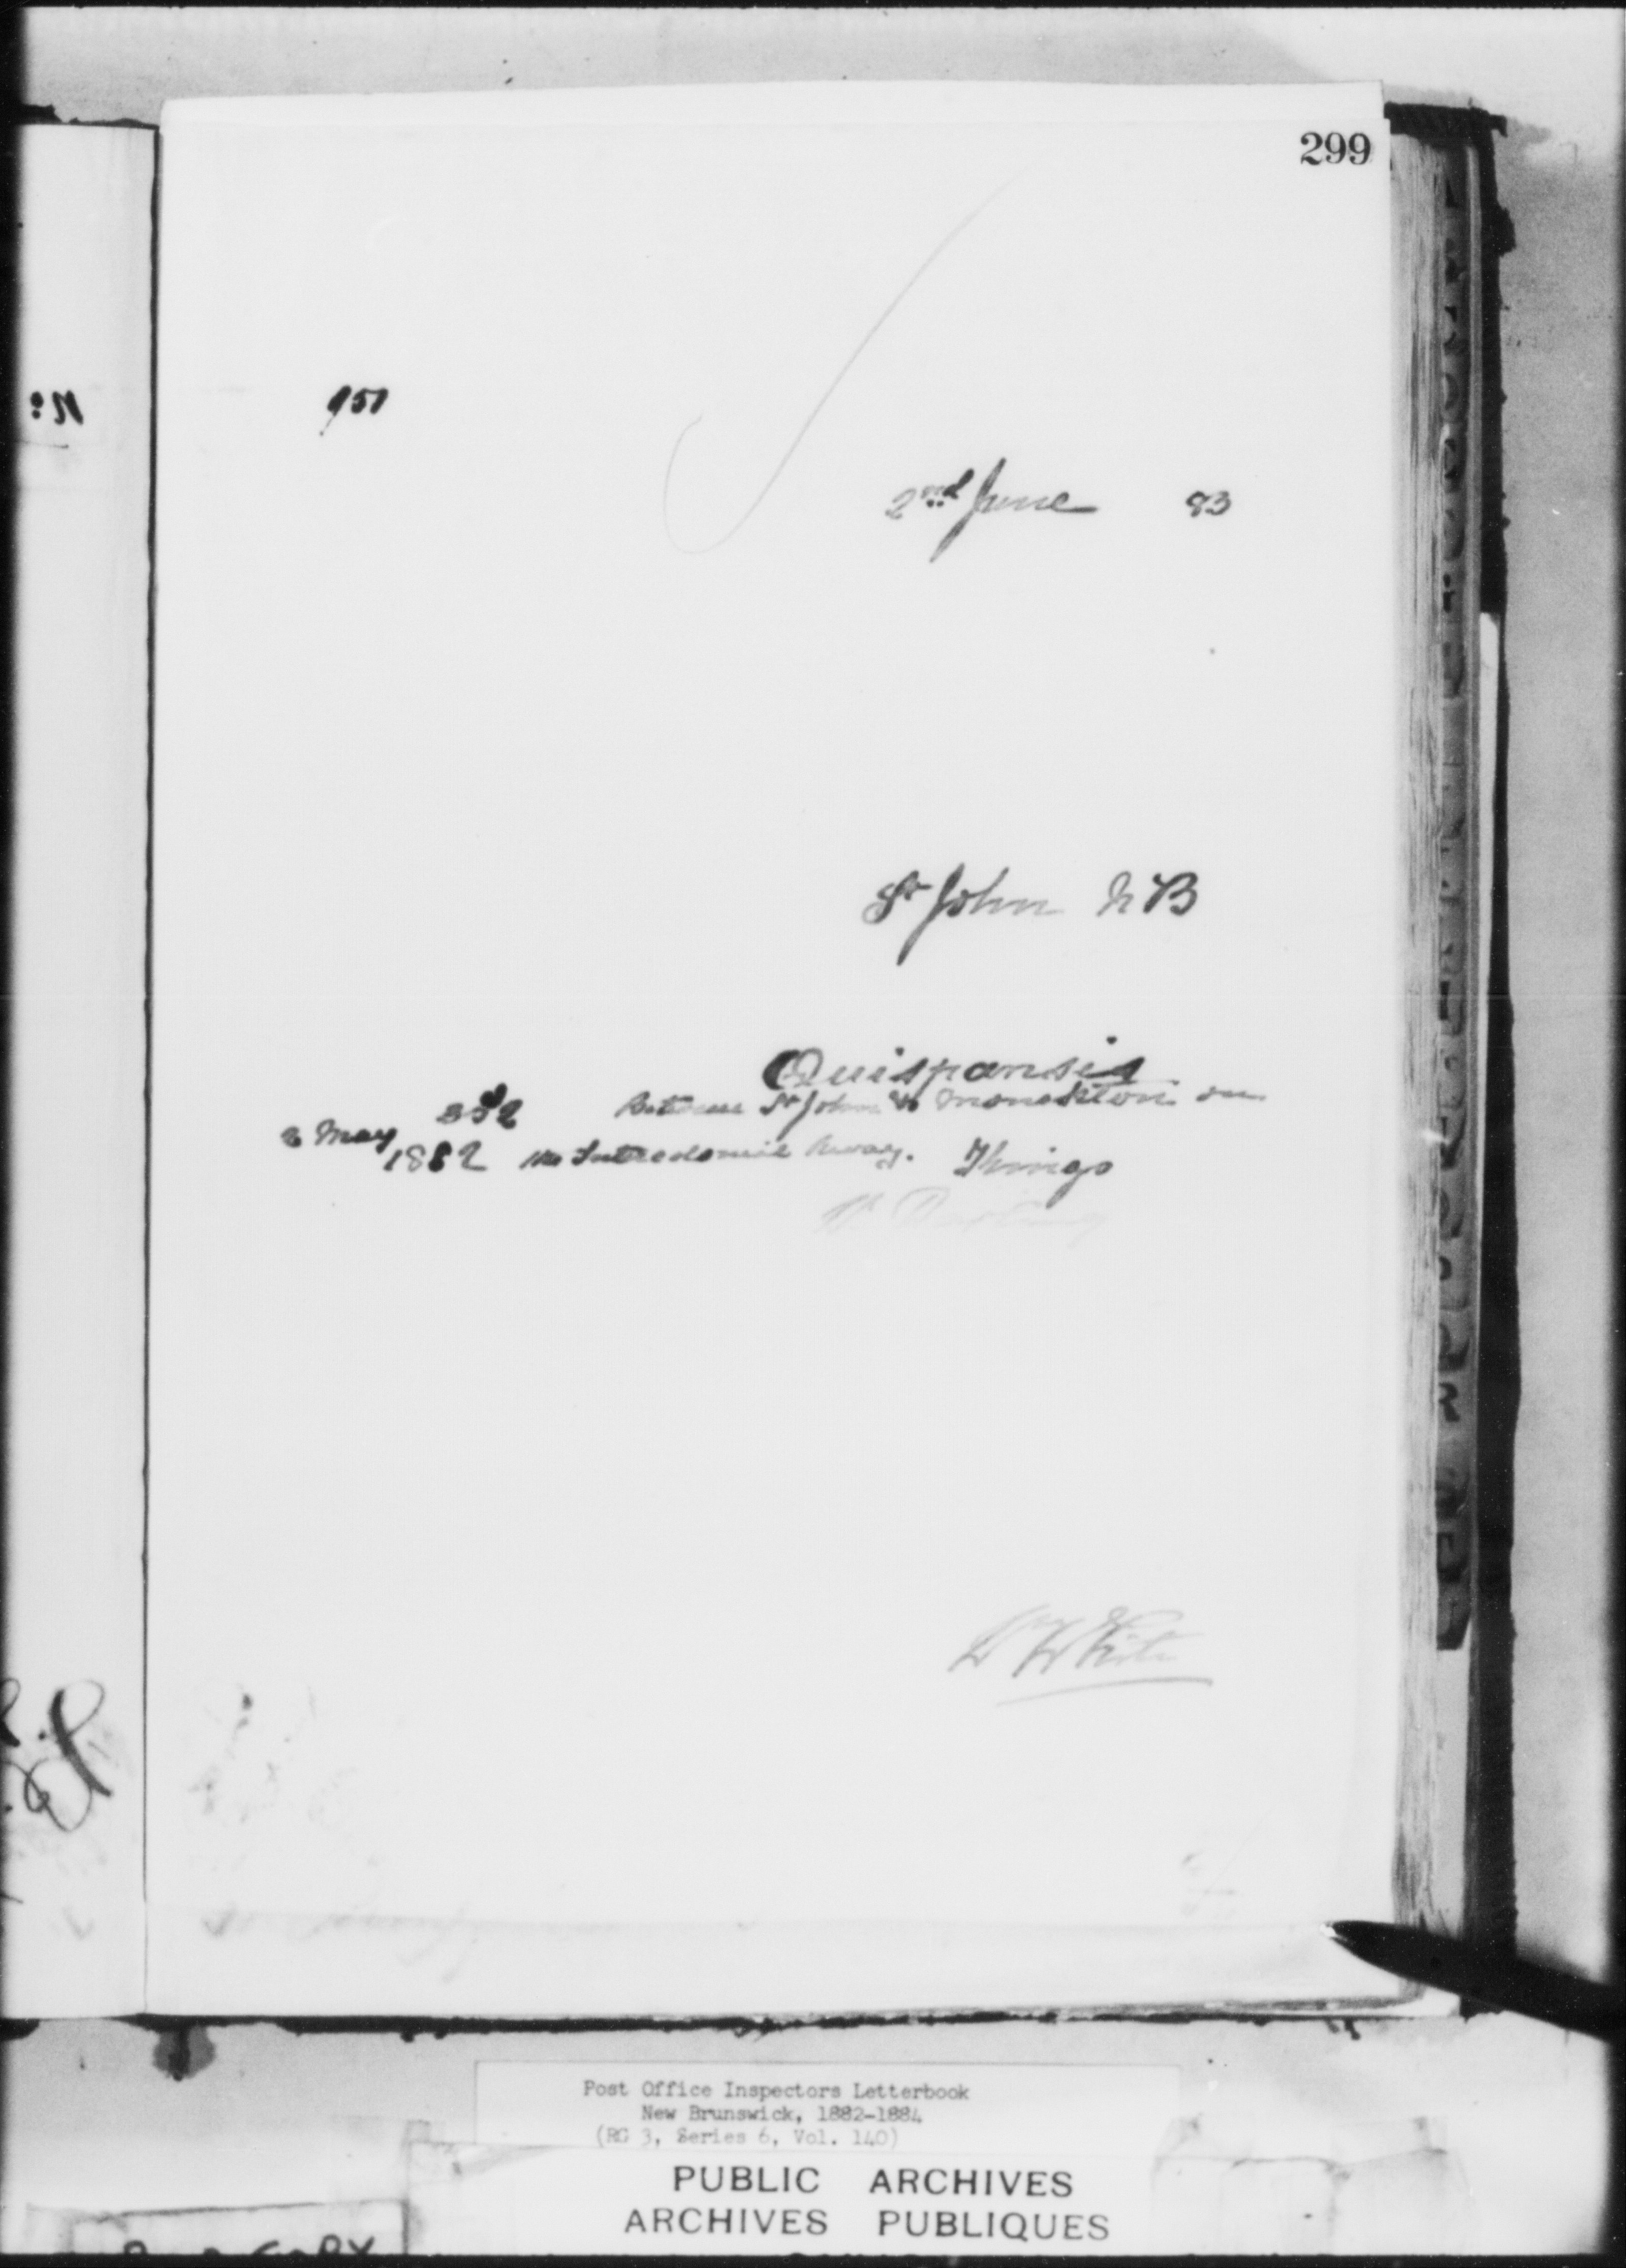 299
951
2nd June 83
St John N B
Quispansis
352 Between St John & Monckton on
2 May
1882 the Intercolonial Rway. Kings
W White
Post Office Inspectors Letterbook
New Brunswick, 1882-1884
(RG 3, Series 6, Vol. 140)
PUBLIC ARCHIVES
ARCHIVES PUBLIQUES